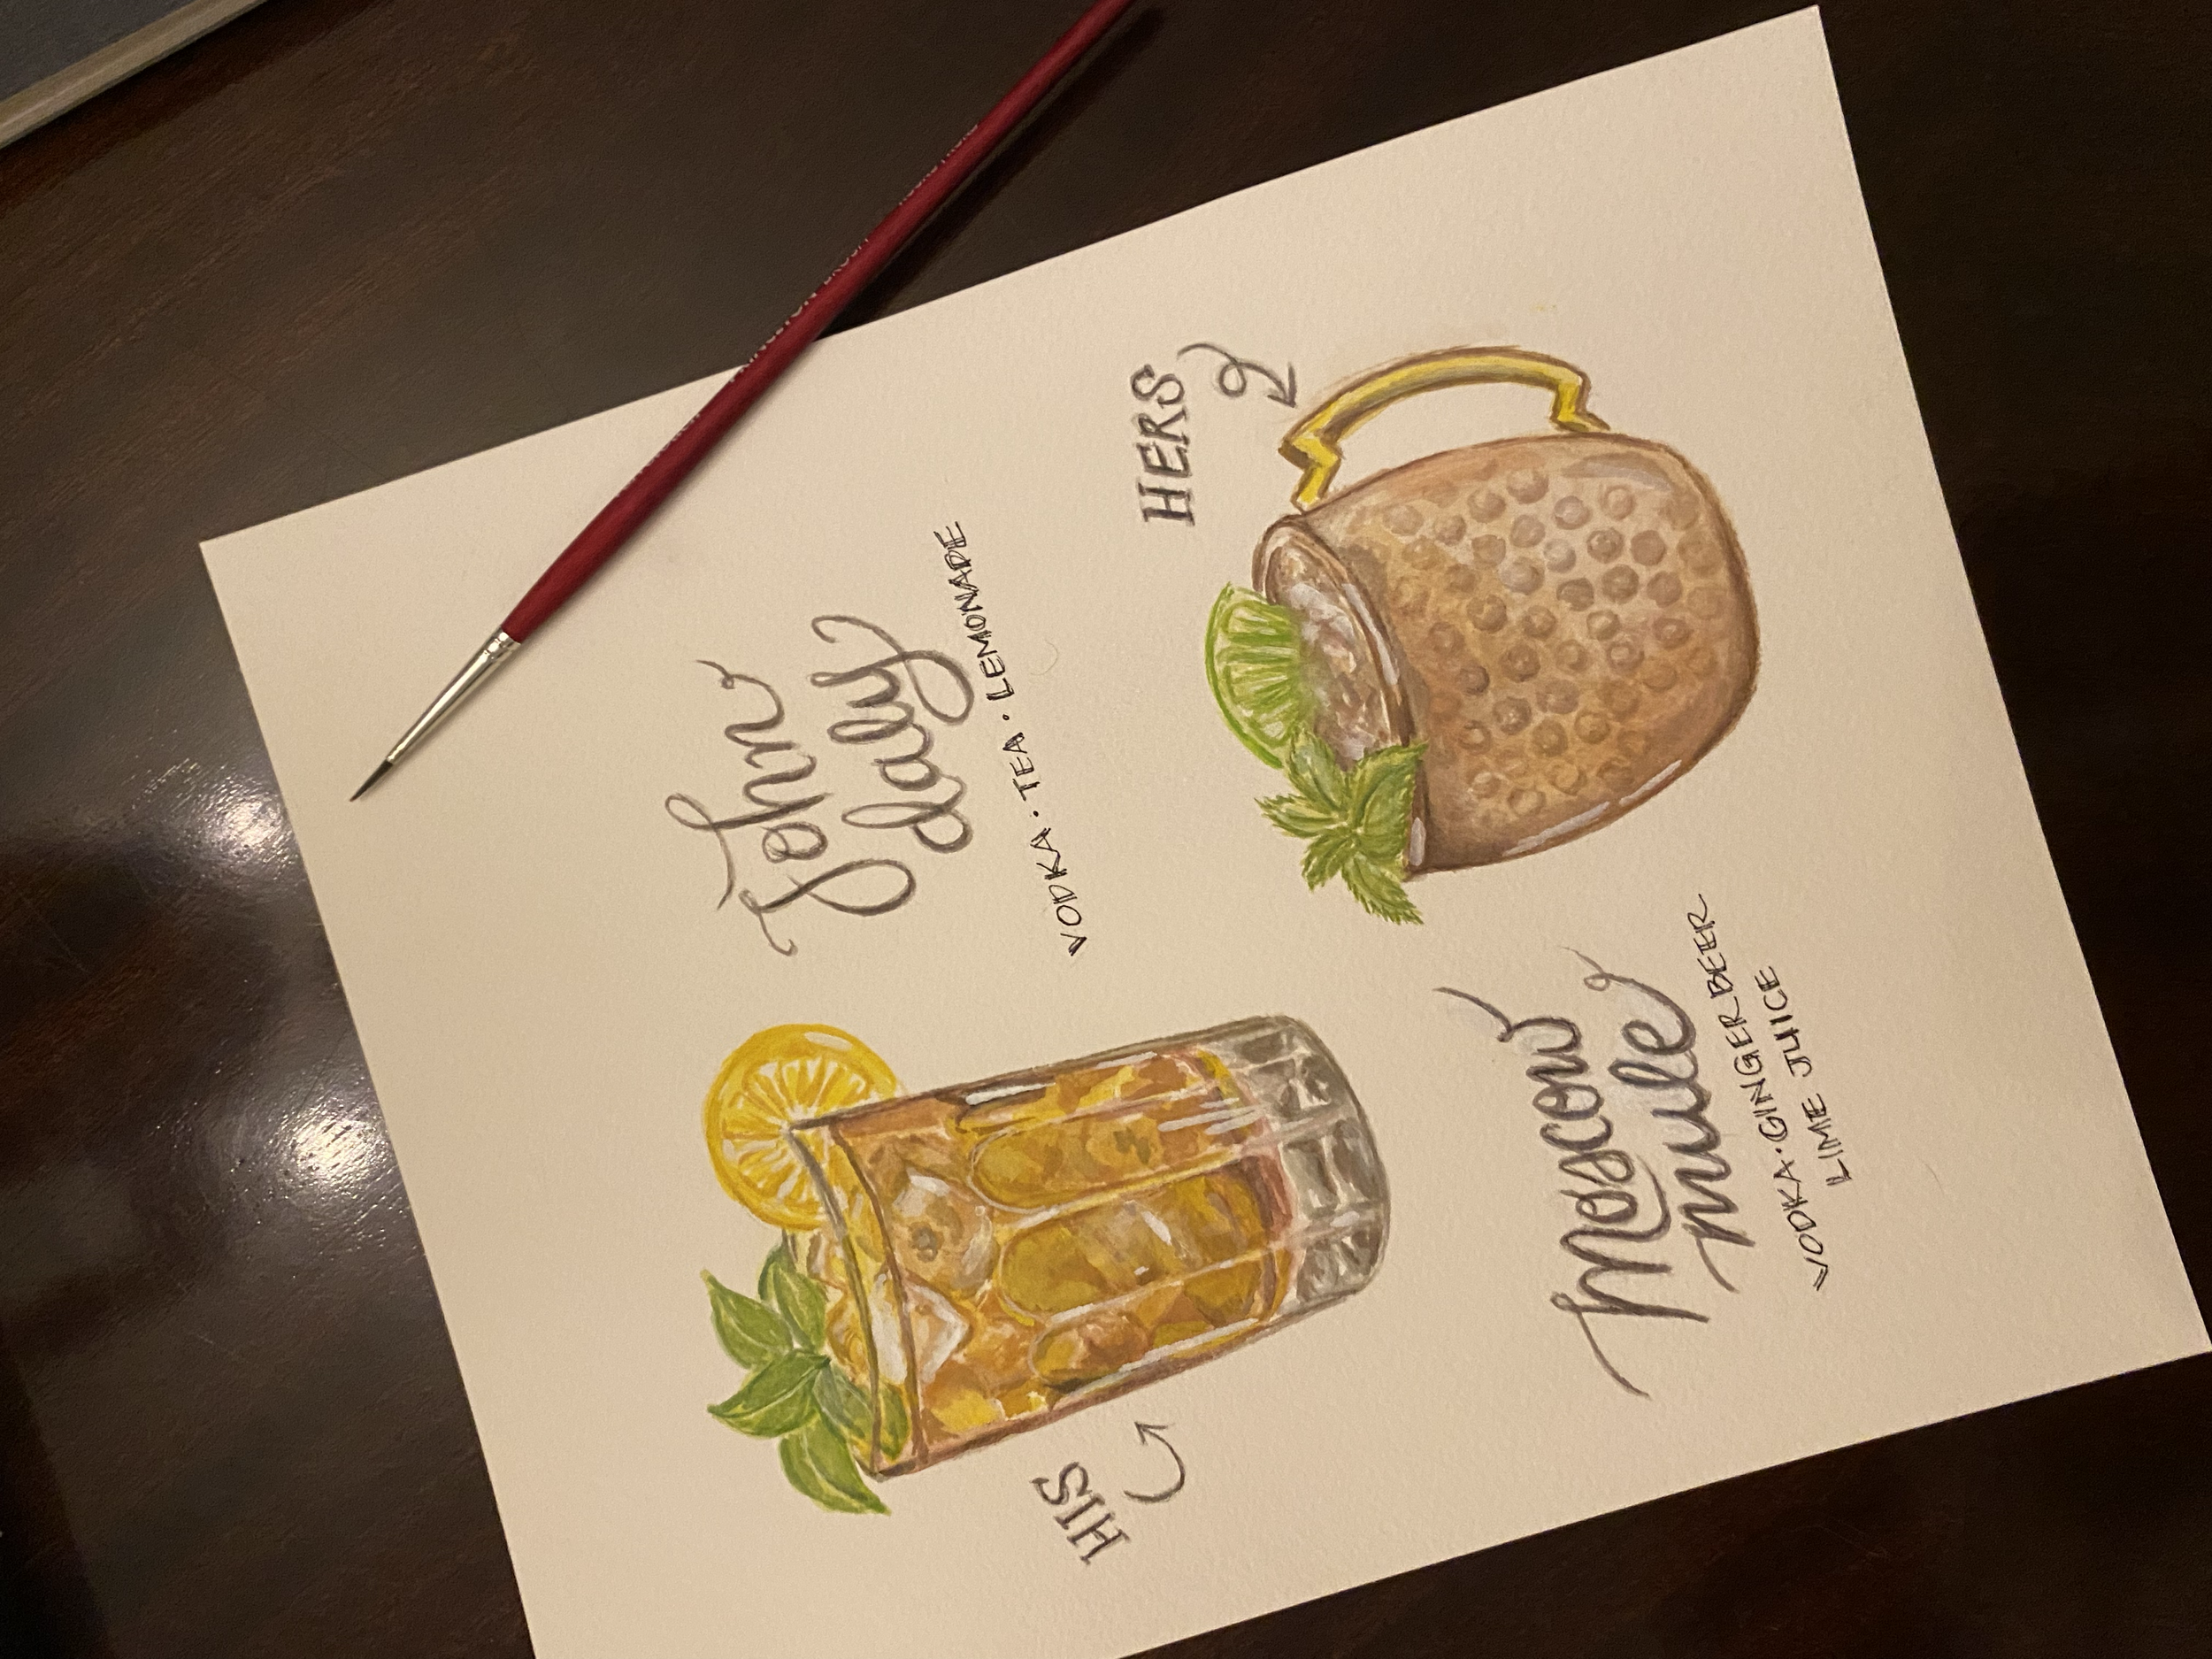 John
daly
VODKA · TEA · LEMONADE
HIS
HERS
Moscow
mule
VODKA · GINGER BEER
LIME JUICE